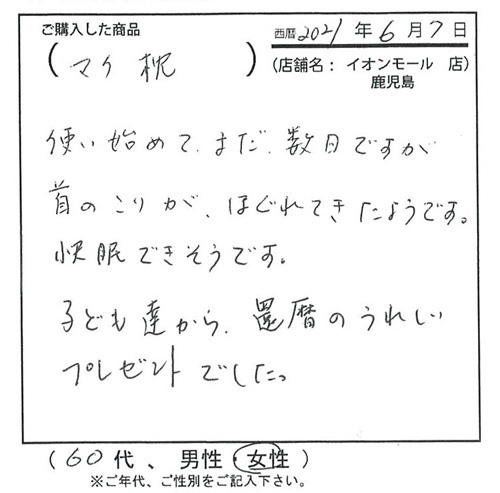 ご購入した商品
西暦2021年6月7日
(マク枕)
(店舗名：イオンモール 店)
鹿児島
使い始めて、まだ、数日ですが
首のこりが、ほぐれてきたようです。
快眠できそうです。
子ども達から、還暦のうれしい
プレゼントでした。
(60代、男性・女性)
※ご年代、ご性別をご記入下さい。